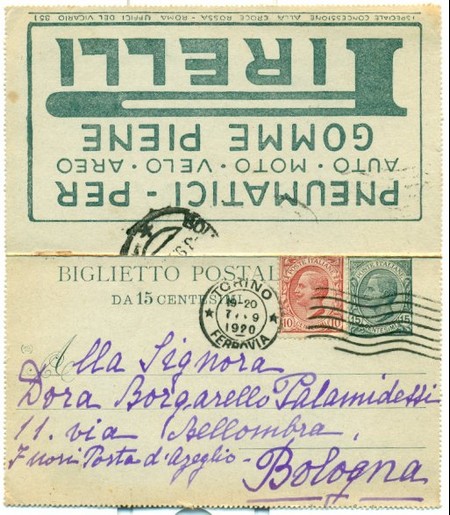 SPECIALE CONCESSIONE ALLA CROCE ROSSA - ROMA UFFICI DEL VICARIO 351
PNEUMATICI - PER
AUTO · MOTO · VELO · AREO
GOMME PIENE
PIRELLI
BIGLIETTO POSTALE
DA 15 CENTESIMI
TORINO
19-20
1920
FERROVIA
POSTE ITALIANE
10 10
POSTE ITALIANE
15 15
Alla Signora
Dora Borgarello Palamidessi
11. via Bellombra,
Fuori Porta d'Azeglio -
Bologna